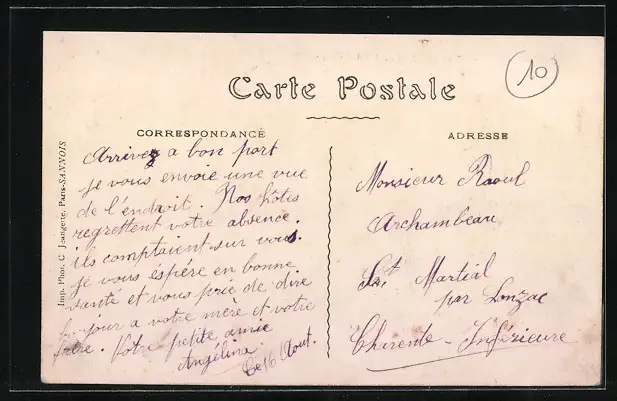 Carte Postale
10
CORRESPONDANCE
ADRESSE
Arrivez a bon port
je vous envoie une vue
de l'endroit. Nos hôtes
regrettent votre absence.
ils comptaient sur vous.
je vous éspère en bonne
santé et vous prie de dire
jour a votre mère et votre
frère. Votre petite amie
Angélina
Ce 16 Aout.
Monsieur Raoul
Archambeau
St Martial
par Lonzac
Charente-Inférieure
Imp. Phot. C. Jeangette, Paris-SANNOIS